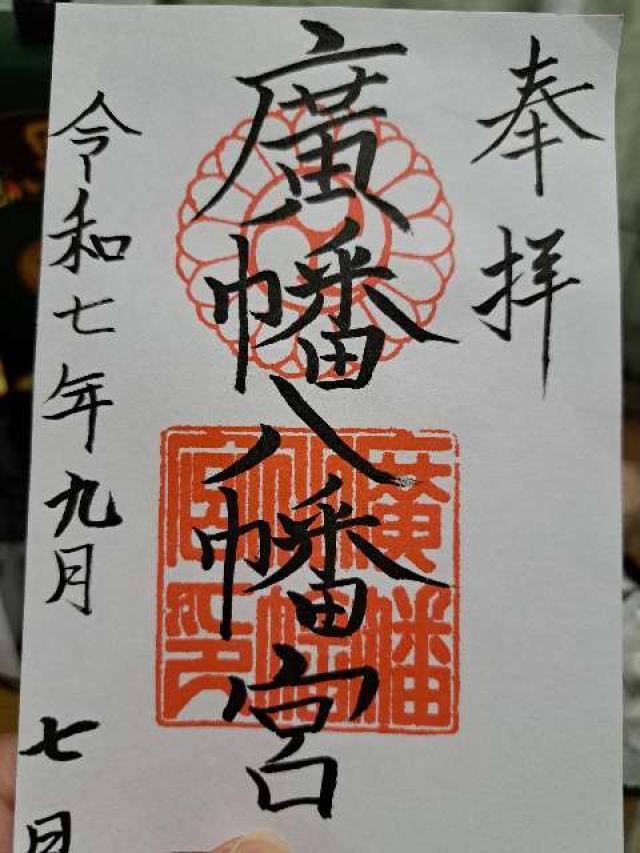 奉拝
廣幡八幡宮
令和七年九月七日
廣幡
八幡
宮印